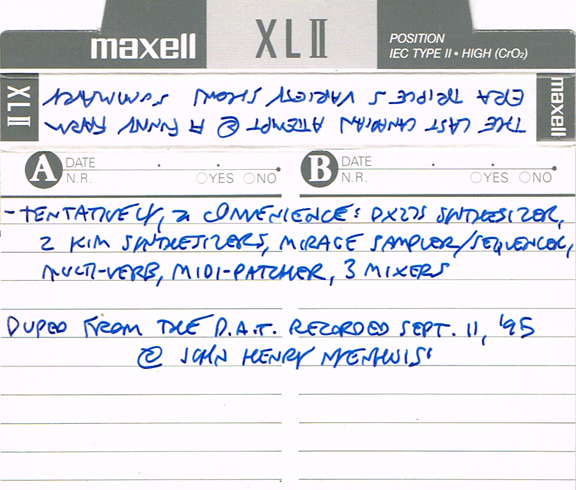 maxell XLII POSITION
IEC TYPE II • HIGH (CrO₂)
XLII
maxell
THE LAST CANADIAN ATTEMPT @ A FUNNY FARM
ERA TRIPLE S VARIETY SHOW SUMMARY
A DATE
N.R. YES NO
B DATE
N.R. YES NO
- TENTATIVELY, a CONVENIENCE: DX27S SYNTHESIZER,
2 KIM SYNTHESIZERS, MIRAGE SAMPLER/SEQUENCER,
MULTI-VERB, MIDI-PATCHER, 3 MIXERS
DUPED FROM THE D.A.T. RECORDED SEPT. 11, '95
@ JOHN HENRY NYENHUIS'